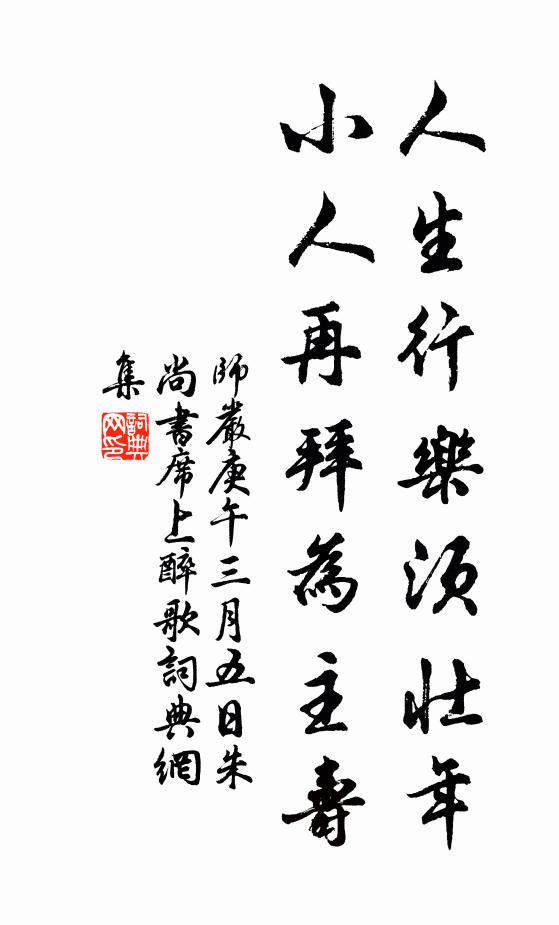 人生行樂須壯年
小人再拜為主壽
師嚴庚午三月五日朱
尚書席上醉歌詞典網
集
詞典网印